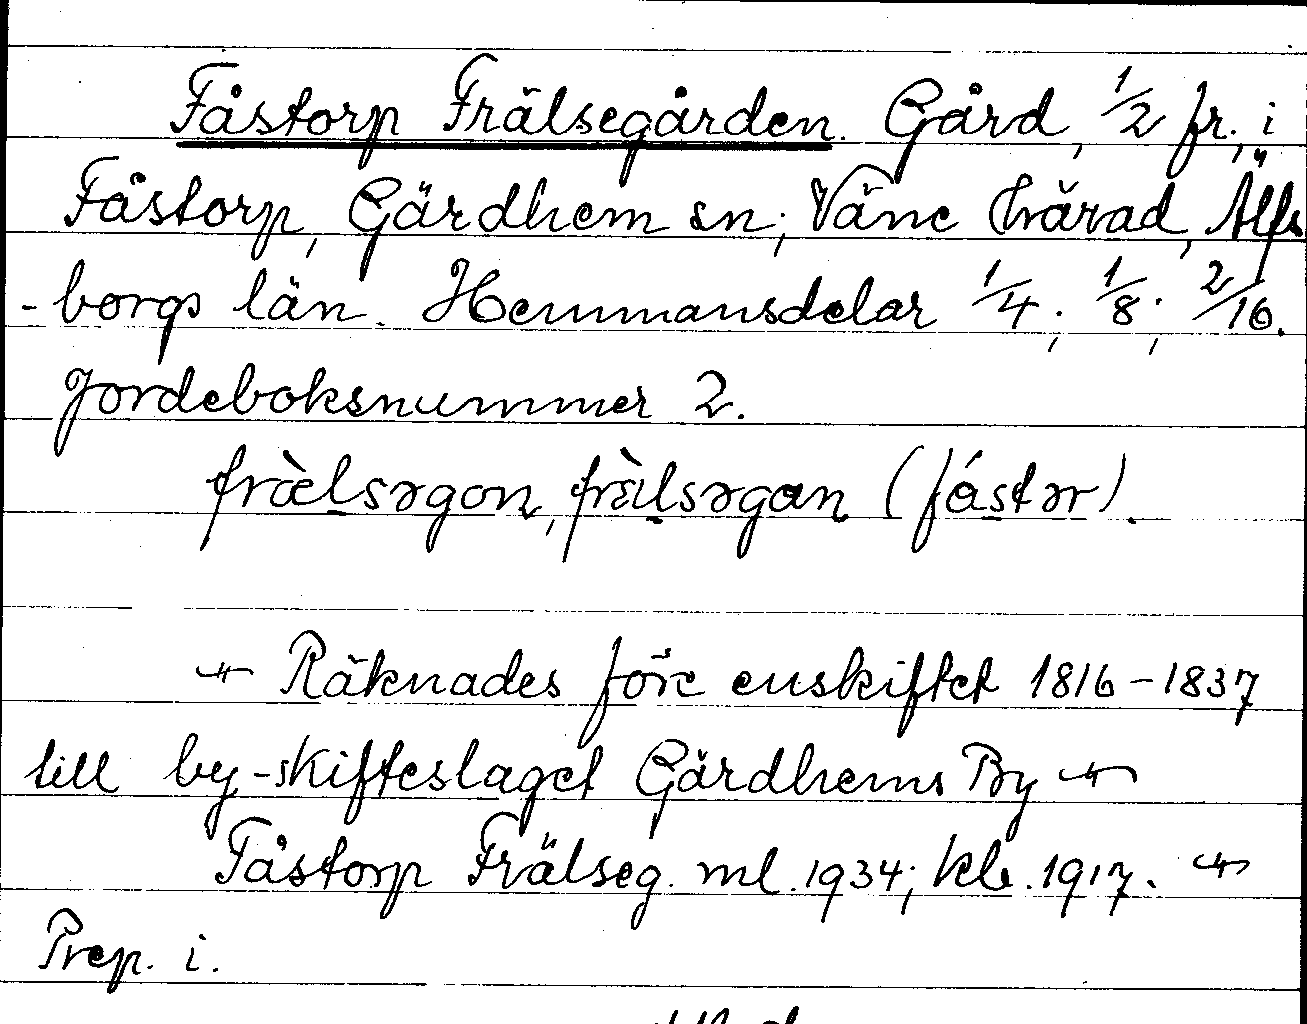 Fåstorp Frälsegården. Gård, 1/2 fr., i
Fåstorp, Gärdhem sn; Väne härad, Älfs
-borgs län. Hemmansdelar 1/4; 1/8; 2/16.
Jordeboksnummer 2.
fræ̀lsəgon, frälsəgan (fåstər).
Räknades före enskiftet 1816-1837
till by-skifteslaget Gärdhems By
Fåstorp Frälseg. ml. 1934; kle. 1917.
Prep. i.